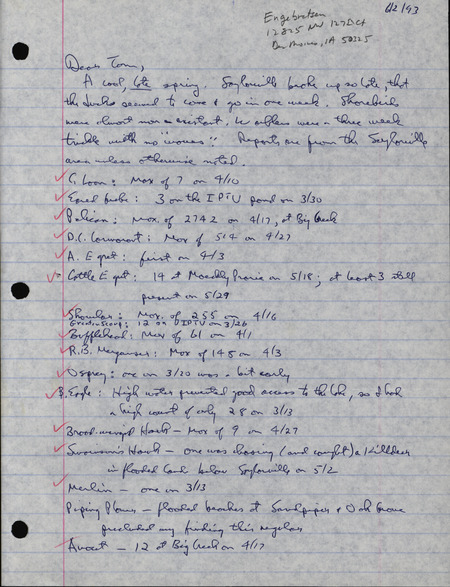 6/2/93
Engebretsen
12825 NW 127th Ct
Des Moines, IA 50325
Dear Tom,
A cool, late spring. Saylorville backed up so late, that
the ducks seemed to come & go in one week. Shorebirds
were almost non-existent. Warblers were a three week
trickle with no "waves". Reports are from the Saylorville
area unless otherwise noted.
C. Loon: Max of 7 on 4/10
Eared Grebe: 3 on the IPTV pond on 3/30
Pelican: Max. of 2742 on 4/17, at Big Creek
D.C. Cormorant: Max of 514 on 4/27
A. Egret: first on 4/3
Cattle Egret: 14 at Moeckly Prairie on 5/18; at least 3 still
present on 5/29
Shoveler: Max. of 255 on 4/16
Greater Scaup: 12 on IPTV on 3/26
Bufflehead: Max of 61 on 4/1
R.B. Merganser: Max of 145 on 4/3
Osprey: one on 3/20 was a bit early
B. Eagle: High water prevented good access to the lake, so I had
a high count of only 28 on 3/13
Broad-winged Hawk - Max of 9 on 4/27
Swainson's Hawk - one was chasing (and caught) a Killdeer
in flooded land below Saylorville on 5/2
Merlin - one on 3/13
Piping Plover - flooded beaches at Sandpiper & Oak Grove
precluded my finding this regular
Avocet - 12 at Big Creek on 4/17